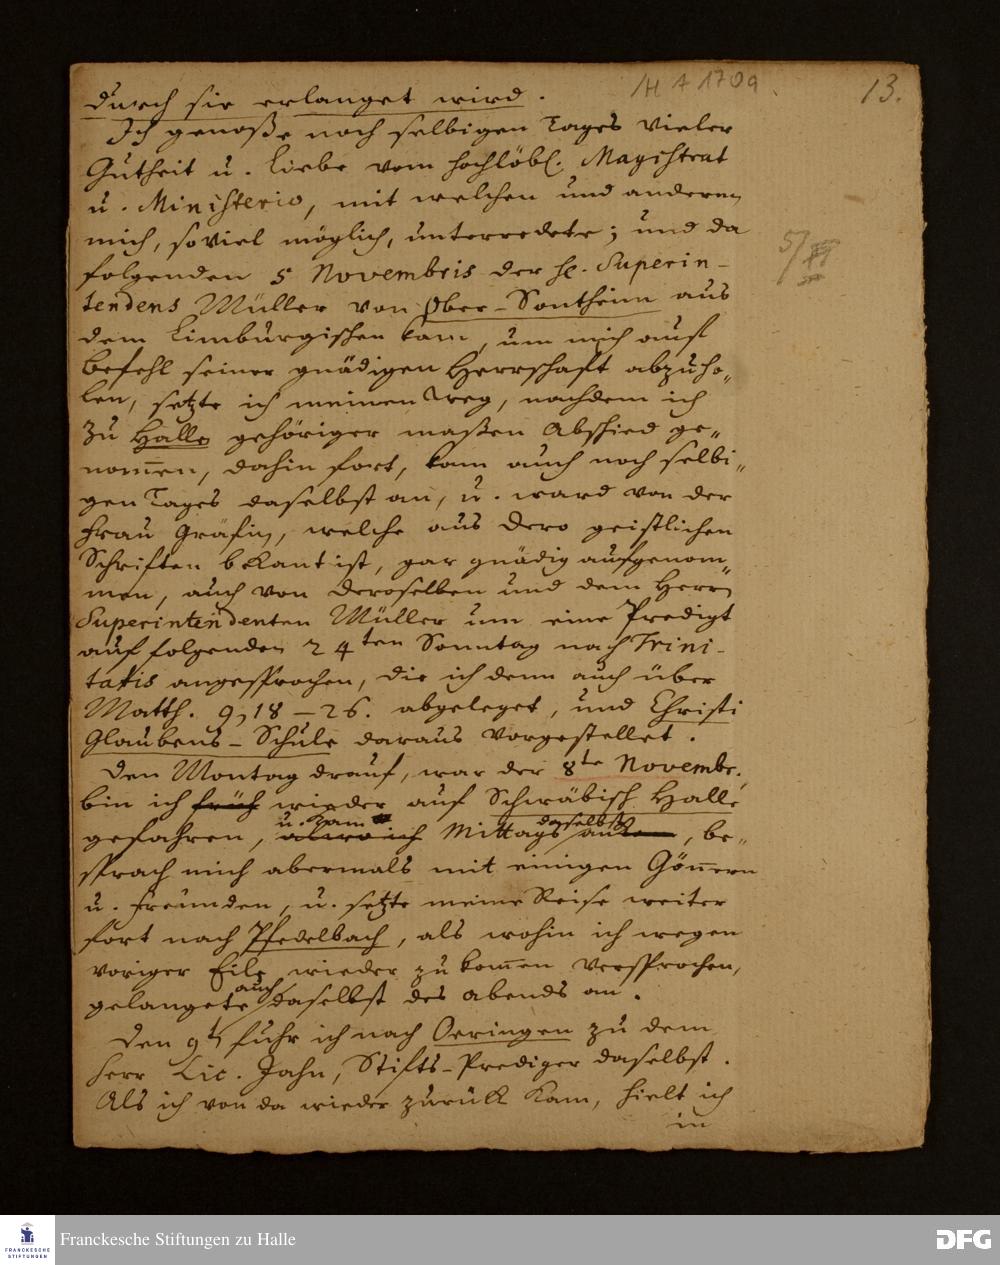 H A 170a
13.
durch sie erlanget wird.
Ich genoße noch selbigen Tages vieler
Gutheit u. Liebe vom Hochlöbl. Magistrat
u. Ministerio, mit welchen und anderen
mich, soviel möglich, unterredete; und da
folgenden 5 Novembris der H. Superin-
tendens Müller von Ober-Sontheim aus
dem Limburgischen kam, um mich auf
Befehl seiner gnädigen Herrschaft abzuho-
len, setzte ich meinen Weg, nachdem ich
zu Halle gehöriger maßen Abschied ge-
nom̅en, dahin fort, kam auch noch selbi-
gen Tages daselbst an, u. ward von der
Frau Gräfin, welche aus dero geistlichen
Schriften bekant ist, gar gnädig aufgenom-
men, auch von deroselben und dem Herrn
Superintendenten Müller um eine Predigt
auf folgenden 24ten Sonntag nach Trini-
tatis angesprochen, die ich denn auch über
Matth. 9, 18-26. abgeleget, und Christi
Glaubens-Schule daraus vorgestellet.
Den Montag drauf, war der 8te Novembr.
bin ich früh wieder auf Schwäbisch Halle
gefahren, u. kam Mittags daselbst an, be-
sprach mich abermals mit einigen Gön̅ern
u. Freunden, u. setzte meine Reise weiter
fort nach Pfedelbach, als wohin ich wegen
voriger Eile wieder zu kom̅en versprochen,
gelangete auch daselbst des abends an.
Den 9t fuhr ich nach Oeringen zu dem
Herr Lic. Jahn, Stifts-Prediger daselbst.
Als ich von da wieder zurück kam, hielt ich
in
FRANCKESCHE
STIFTUNGEN
Franckesche Stiftungen zu Halle
DFG